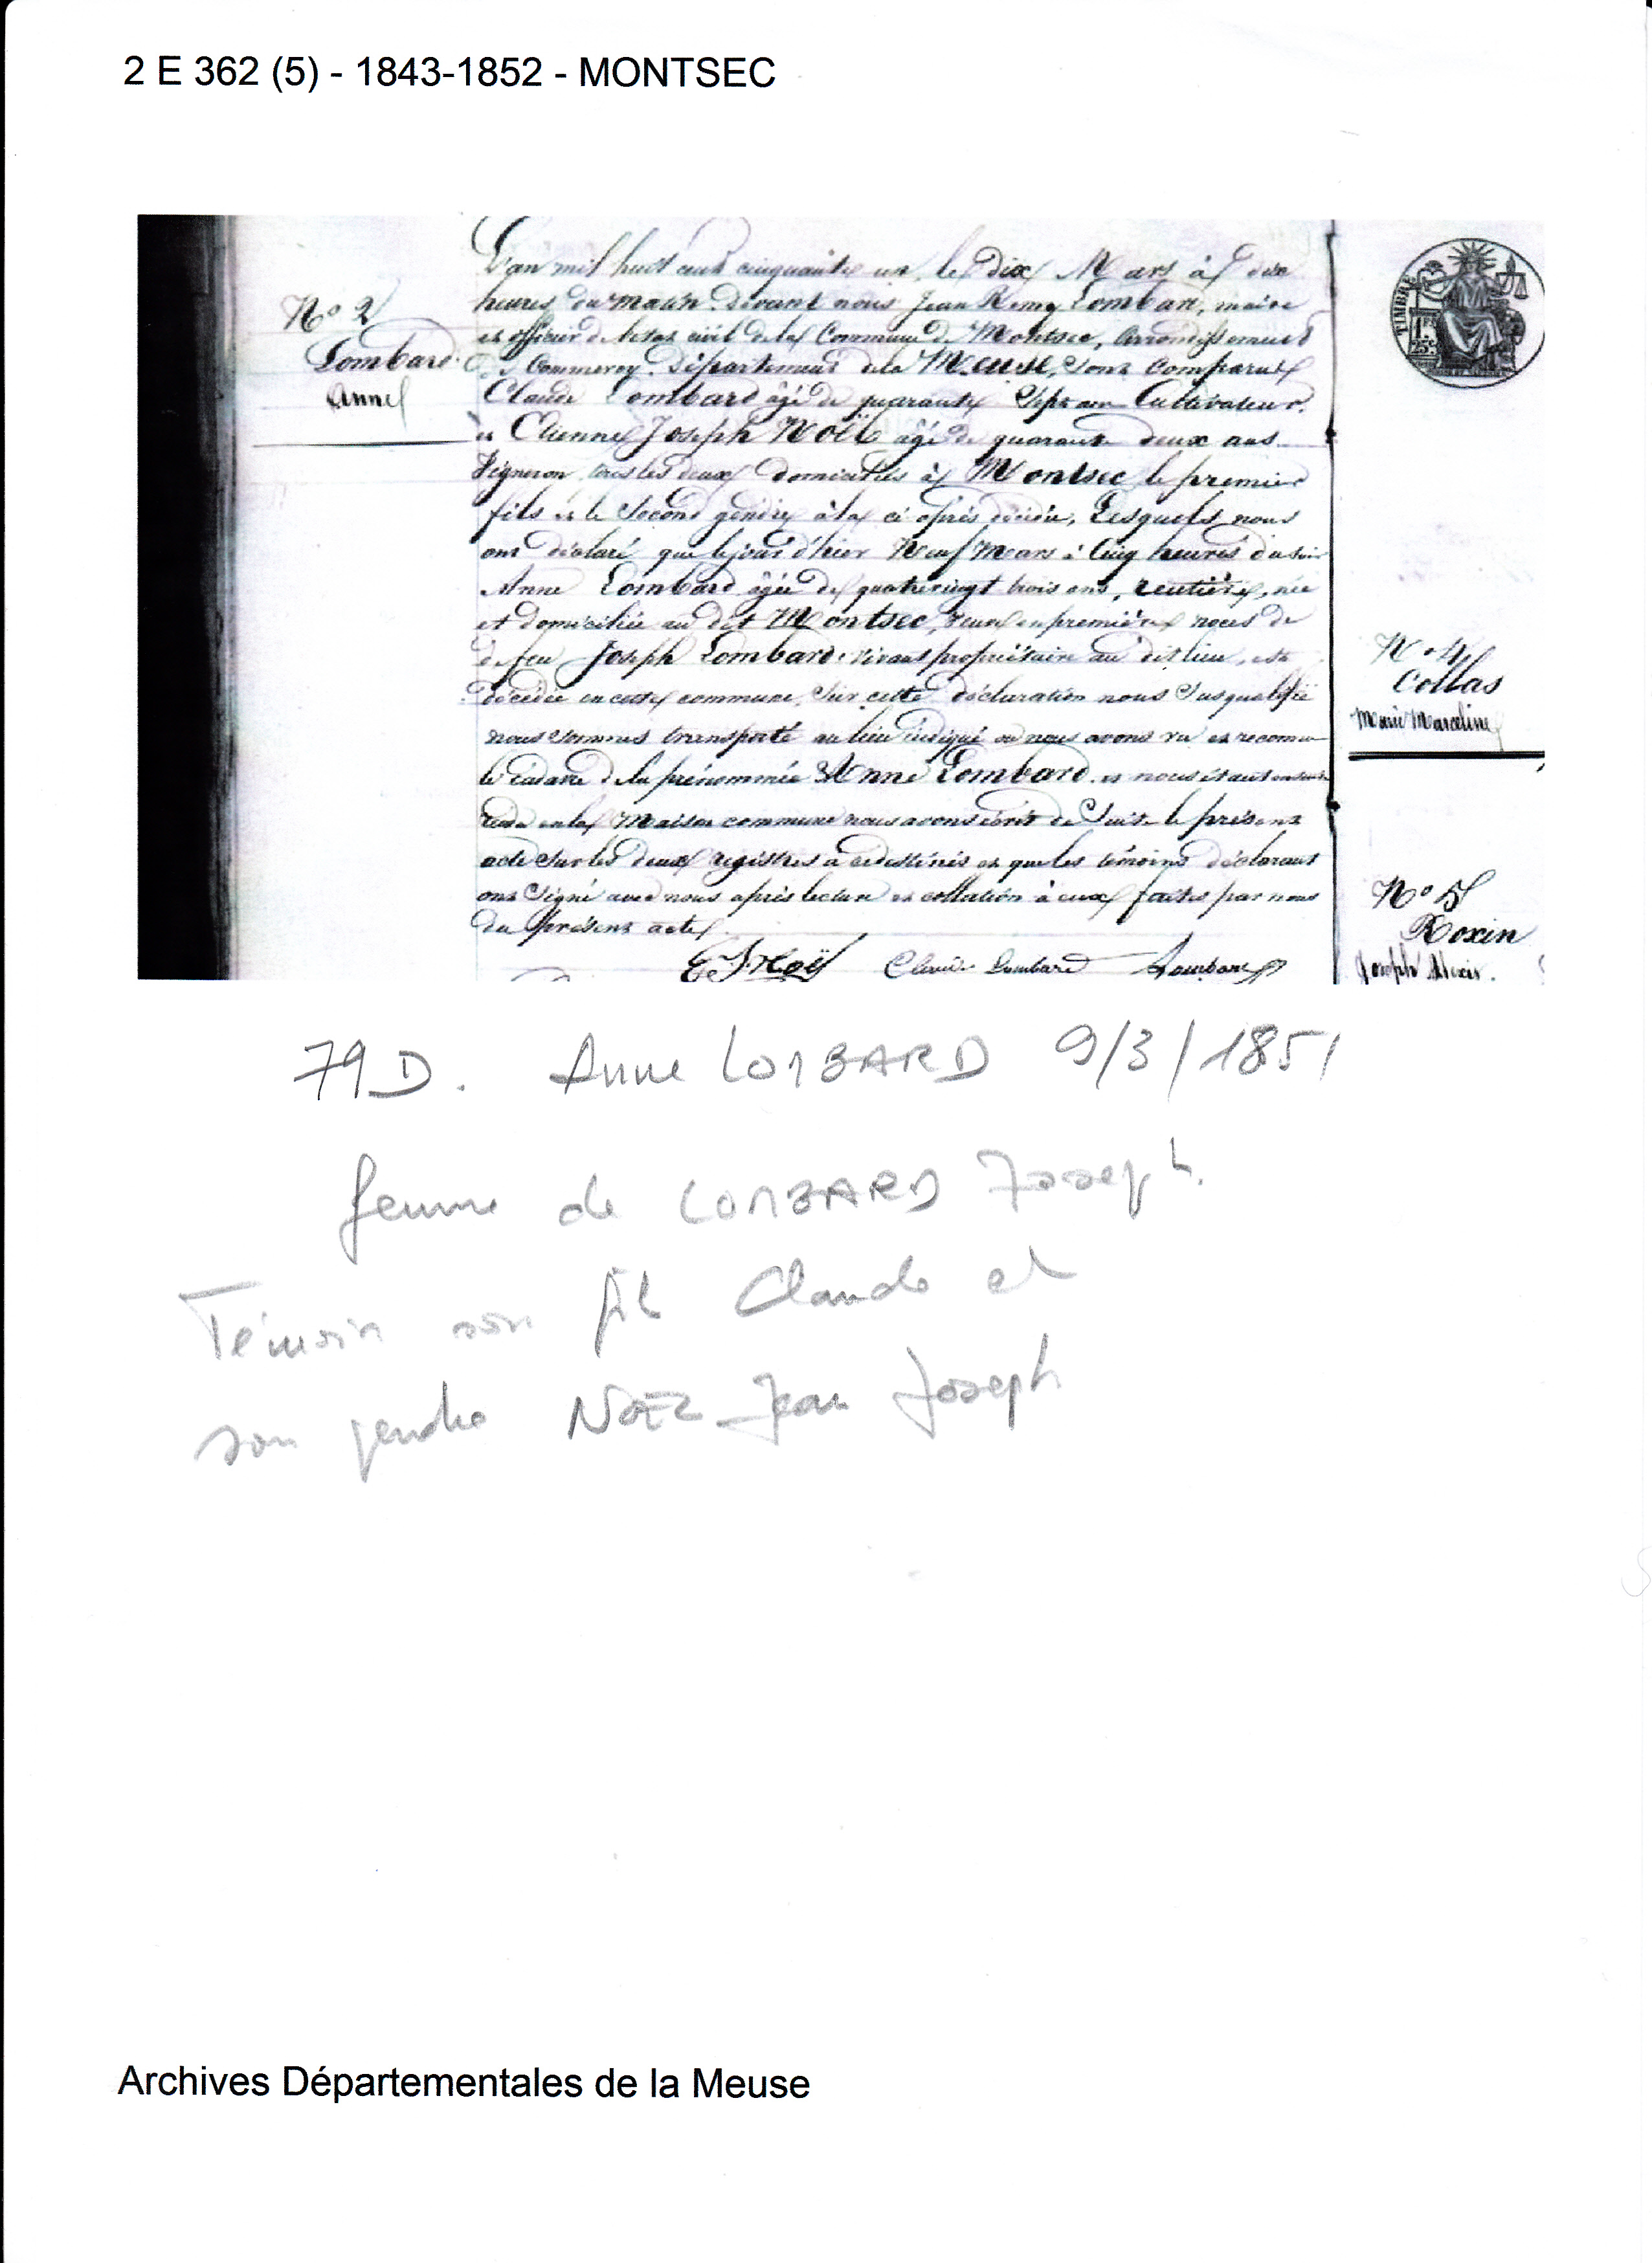 2 E 362 (5) - 1843-1852 - MONTSEC
N° 2
Lombard
Anne
L'an mil huit cent cinquante un, le dix Mars à dix
heures du matin. Devant nous Jean Remy Lombard, maire
et officier de l'état civil de la Commune de Montsec, arrondissement
de Commercy. Département de la Meuse, sont comparus
Claude Lombard âgé de quarante sept ans Cultivateur,
et Etienne Joseph Noël âgé de quarante deux ans
Vigneron, tous les deux domiciliés à Montsec le premier
fils et le second gendre à la ci après décédée, Lesquels nous
ont déclaré que le jour d'hier Neuf Mars à cinq heures du soir
Anne Lombard âgée de quatrevingt trois ans, rentière, née
et domiciliée au dit Montsec, veuve en premières noces de
de feu Joseph Lombard, vivant propriétaire au dit lieu, est
décédée en cette commune, Sur cette déclaration nous Susqualifié
nous sommes transporté au lieu indiqué où nous avons vu et reconnu
le cadavre de la prénommée Anne Lombard. et nous étant ensuite
rendu en la Maison commune nous avons écrit de Suite le présent
acte Sur les deux registres à ce destinés et que les témoins déclarant
ont Signé avec nous après lecture et collation à eux faites par nous
du présent acte.
E J Noël Claude Lombard Lombard
TIMBRE
1F
25c
N° 4
Collas
Marie Marceline
N° 5
Roxin
Joseph Alexis.
79 D. Anne LOMBARD 9/3/1851
femme de LOMBARD Joseph.
Témoin son fils Claude et
son gendre NOËL Jean Joseph
Archives Départementales de la Meuse